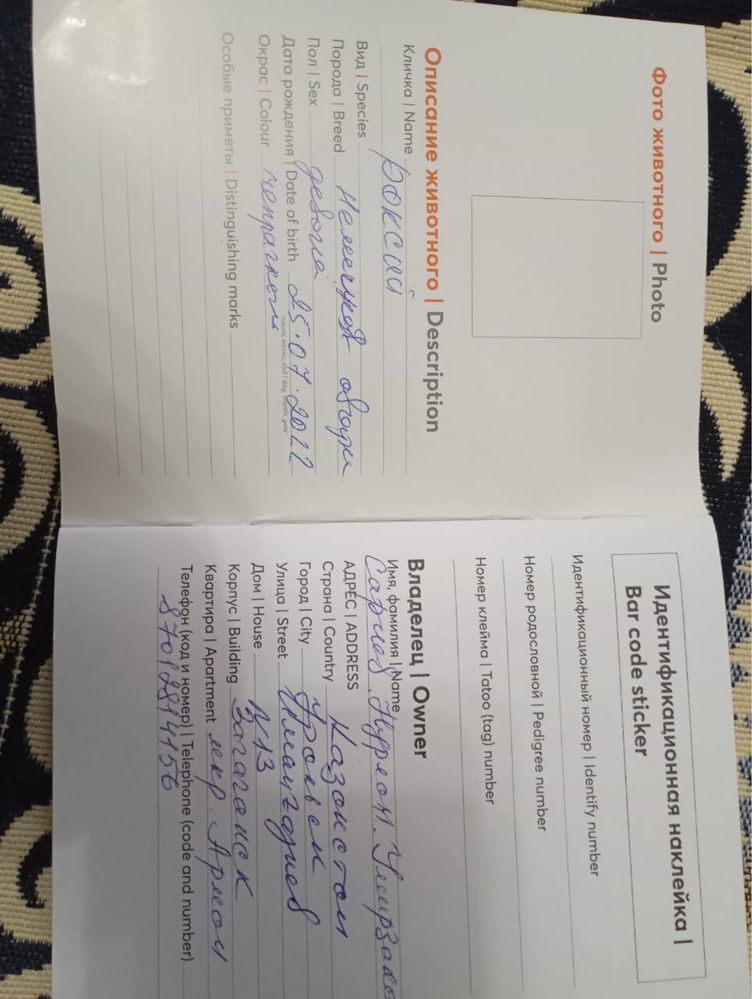 Фото животного | Photo
Описание животного | Description
Кличка | Name роксий
Вид | Species
Порода | Breed Немецкая овчрн
Пол | Sex девочка
Дата рождения | Date of birth 25.07.2022
число, месяц, год / day, month, year
Окрас | Colour чепрачный
Особые приметы | Distinguishing marks
Идентификационная наклейка |
Bar code sticker
Идентификационный номер | Identify number
Номер родословной | Pedigree number
Номер клейма | Tatoo (tag) number
Владелец | Owner
Имя, фамилия | Name
АДРЕС | ADDRESS
Страна | Country Казахстан
Город | City
Улица | Street
Дом | House N13
Корпус | Building
Квартира | Apartment мкр. Арман
Телефон (код и номер) | Telephone (code and number)